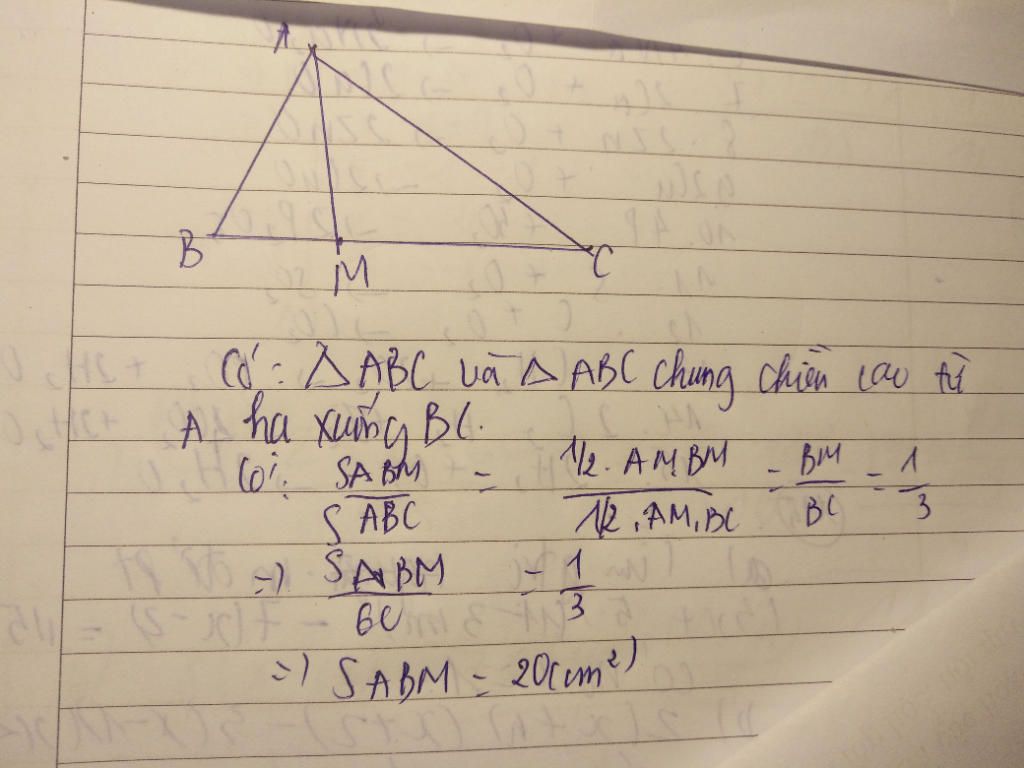 A
B
M
C
Có: △ABC và △ABC chung chiều cao từ
A hạ xuống BC.
Có: SABM/SABC = 1/2.AM.BM/1/2.AM.BC = BM/BC = 1/3
=) SABM/60 = 1/3
=) SABM = 20(cm²)